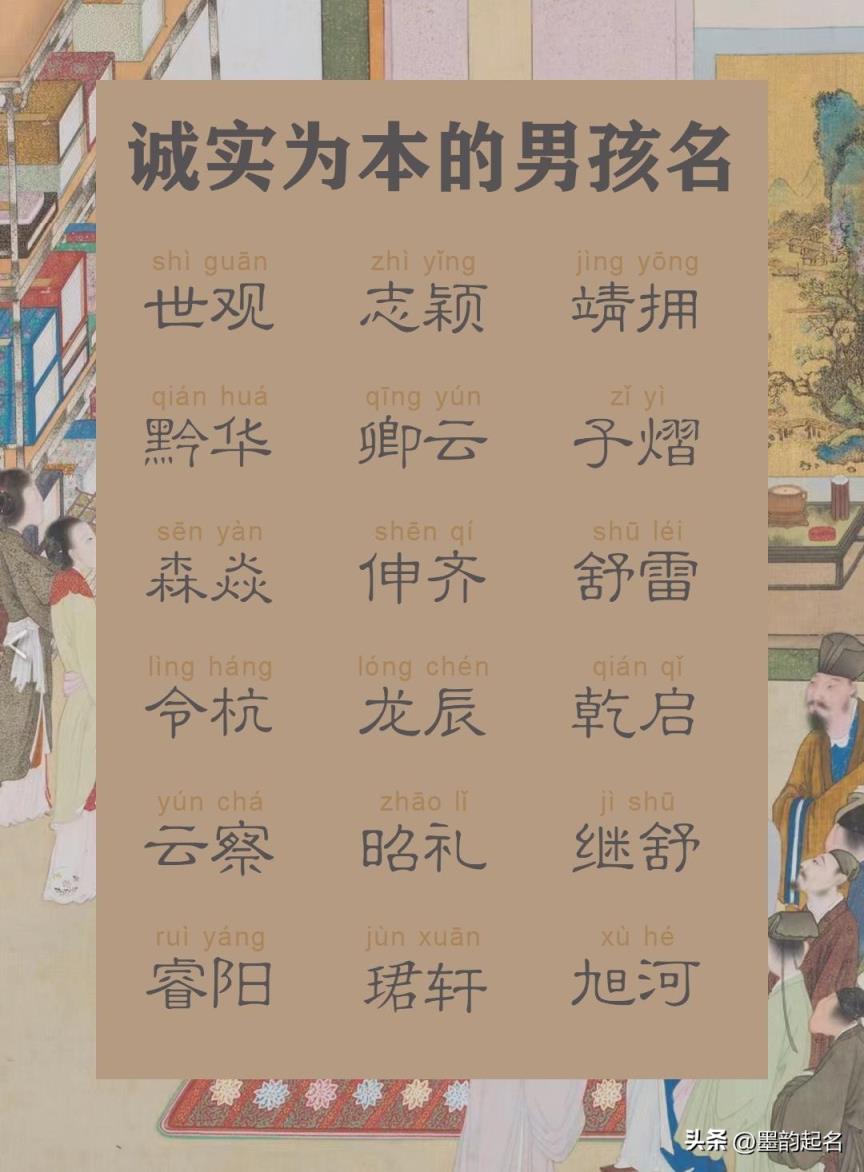 诚实为本的男孩名
shì guān zhì yǐng jìng yōng
世观 志颖 靖拥
qián huá qīng yún zǐ yì
黔华 卿云 子熠
sēn yàn shēn qí shū léi
森焱 伸齐 舒雷
lìng háng lóng chén qián qǐ
令杭 龙辰 乾启
yún chá zhāo lǐ jì shū
云察 昭礼 继舒
ruì yáng jùn xuān xù hé
睿阳 珺轩 旭河
头条 @墨韵起名